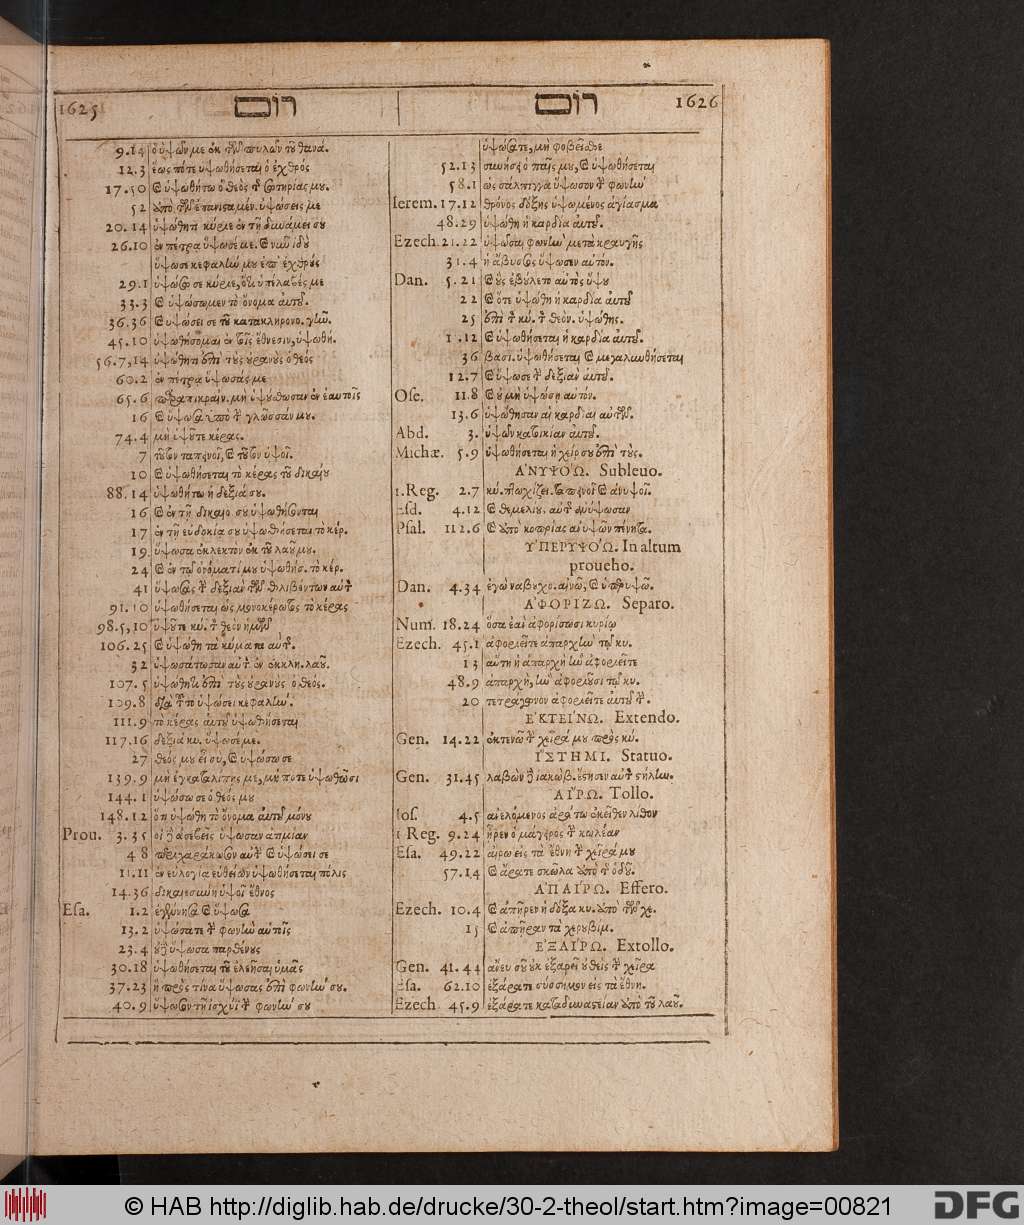 1625 רום רום 1626
9.14 ὁ ὑψῶν με ἐκ τῶν πυλῶν τοῦ θανά.
12.3 ἕως πότε ὑψωθήσεται ὁ ἐχθρός
17.50 καὶ ὑψωθήτω ὁ θεὸς τῆς σωτηρίας μου.
52 ἀπὸ τῶν ἐπανισταμέν. ὑψώσεις με
20.14 ὑψώθητι κύριε ἐν τῇ δυνάμει σου
26.10 ἐν πέτρᾳ ὕψωσέ με. καὶ νῦν ἰδοὺ
ὕψωσε κεφαλήν μου ἐπ' ἐχθρούς
29.1 ὑψώσω σε κύριε, ὅτι ὑπέλαβές με
33.3 καὶ ὑψώσωμεν τὸ ὄνομα αὐτοῦ.
36.36 καὶ ὑψώσει σε τοῦ κατακληρονο. γῆν.
45.10 ὑψωθήσομαι ἐν τοῖς ἔθνεσιν, ὑψωθή.
56.7,14 ὑψώθητι ἐπὶ τοὺς οὐρανοὺς ὁ θεός
60.2 ἐν πέτρᾳ ὕψωσάς με
65.6 παραπικραίν. μὴ ὑψούσθωσαν ἐν ἑαυτοῖς
16 καὶ ὕψωσα ὑπὸ τὴν γλῶσσάν μου.
74.4 μὴ ὑψοῦτε κέρας.
7 τοῦτον ταπεινοῖ, καὶ τοῦτον ὑψοῖ.
10 καὶ ὑψωθήσεται τὸ κέρας τοῦ δικαίου
88.14 ὑψωθήτω ἡ δεξιά σου.
16 καὶ ἐν τῇ δικαιο. σου ὑψωθήσονται
17 ἐν τῇ εὐδοκίᾳ σου ὑψωθήσεται τὸ κέρ.
19 ὕψωσα ἐκλεκτὸν ἐκ τοῦ λαοῦ μου.
24 καὶ ἐν τῷ ὀνόματί μου ὑψωθήσ. τὸ κέρ.
41 ὕψωσας τὴν δεξιὰν τῶν θλιβόντων αὐτὸν
91.10 ὑψωθήσεται ὡς μονοκέρωτος τὸ κέρας
98.5,10 ὑψοῦτε κύ. τὸν θεὸν ἡμῶν
106.25 καὶ ὑψώθη τὰ κύματα αὐτῆς.
32 ὑψωσάτωσαν αὐτὸν ἐν ἐκκλη. λαοῦ.
107.5 ὑψώθητι ἐπὶ τοὺς οὐρανοὺς ὁ θεός.
109.8 διὰ τοῦτο ὑψώσει κεφαλήν.
111.9 τὸ κέρας αὐτοῦ ὑψωθήσεται
117.16 δεξιὰ κυ. ὕψωσέ με.
27 θεός μου εἶ σὺ, καὶ ὑψώσω σε
139.9 μὴ ἐγκαταλίπῃς με, μή ποτε ὑψωθῶσι
144.1 ὑψώσω σε ὁ θεός μου
148.12 ὅτι ὑψώθη τὸ ὄνομα αὐτοῦ μόνου
Prou. 3.35 οἱ δὲ ἀσεβεῖς ὕψωσαν ἀτιμίαν
4 8 περιχαράκωσον αὐτὴν καὶ ὑψώσει σε
11.11 ἐν εὐλογίᾳ εὐθείων ὑψωθήσεται πόλις
14.36 δικαιοσύνη ὑψοῖ ἔθνος
Esa. 1.2 ἐγέννησα καὶ ὕψωσα
13.2 ὑψώσατε τὴν φωνὴν αὐτοῖς
23.4 οὐδὲ ὕψωσα παρθένους
30.18 ὑψωθήσεται τοῦ ἐλεῆσαι ὑμᾶς
37.23 ἢ πρὸς τίνα ὕψωσας ἐπὶ φωνήν σου.
40.9 ὕψωσον τῇ ἰσχύϊ τὴν φωνήν σου
ὑψώσατε, μὴ φοβεῖσθε
52.13 συνήσει ὁ παῖς μου, καὶ ὑψωθήσεται
58.1 ὡς σάλπιγγα ὕψωσον τὴν φωνὴν
Ierem. 17.12 θρόνος δόξης ὑψωμένος ἁγίασμα
48.29 ὑψώθη ἡ καρδία αὐτοῦ.
Ezech. 21.22 ὑψῶσαι φωνὴν μετὰ κραυγῆς
31.4 ἡ ἄβυσσος ὕψωσεν αὐτόν.
Dan. 5.21 καὶ οὓς ἐβούλετο αὐτὸς ὕψου
22 καὶ ὅτε ὑψώθη ἡ καρδία αὐτοῦ
25 ἐπὶ τὸν κύ. τὸν θεὸν. ὑψώθης.
11.12 καὶ ὑψωθήσεται ἡ καρδία αὐτοῦ.
36 βασι. ὑψωθήσεται καὶ μεγαλυνθήσεται
12.7 καὶ ὕψωσε τὴν δεξιὰν αὐτοῦ.
Ose. 11.8 καὶ οὐ μὴ ὑψώσῃ αὐτόν.
13.6 ὑψώθησαν αἱ καρδίαι αὐτῶν.
Abd. 3. ὑψῶν κατοικίαν αὐτοῦ.
Michæ. 5.9 ὑψωθήσεται ἡ χείρ σου ἐπὶ τοὺς.
ἈΝΥΨΌΩ. Subleuo.
1.Reg. 2.7 κύ. πτωχίζει. ταπεινοῖ καὶ ἀνυψοῖ.
Esd. 4.12 καὶ θεμελίους αὐτῆς ἀνύψωσαν
Psal. 112.6 καὶ ἀπὸ κοπρίας ἀνυψῶν πένητα.
ὙΠΕΡΥΨΌΩ. In altum
proueho.
Dan. 4.34 ἐγὼ ναβουχο. αἰνῶ, καὶ ὑπερυψῶ.
ἈΦΟΡΊΖΩ. Separo.
Num. 18.24 ὅσα ἐὰν ἀφορίσωσι κυρίῳ
Ezech. 45.1 ἀφοριεῖτε ἀπαρχὴν τῷ κυ.
13 αὕτη ἡ ἀπαρχὴ ἣν ἀφοριεῖτε
48.9 ἀπαρχή, ἣν ἀφοριοῦσι τῷ κυ.
20 τετράγωνον ἀφοριεῖτε αὐτοῦ τὴν.
ἘΚΤΕΊΝΩ. Extendo.
Gen. 14.22 ἐκτενῶ τὴν χεῖρά μου πρὸς κύ.
ἽΣΤΗΜΙ. Statuo.
Gen. 31.45 λαβὼν δὲ ἰακὼβ. ἔστησεν αὐτὸν στήλην.
ΑἼΡΩ. Tollo.
Ios. 4.5 ἀνελόμενος ἀράτω ἐκεῖθεν λίθον
1 Reg. 9.24 ἦρεν ὁ μάγειρος τὴν κωλέαν
Esa. 49.22 αἴρω εἰς τὰ ἔθνη τὴν χεῖρά μου
57.14 καὶ ἄρατε σκῶλα ἀπὸ τῆς ὁδοῦ.
ἈΠΑΊΡΩ. Effero.
Ezech. 10.4 καὶ ἀπῆρεν ἡ δόξα κυ. ἀπὸ τῶν χε.
15 καὶ ἀπῆραν τὰ χερουβίμ.
ἘΞΑΊΡΩ. Extollo.
Gen. 41.44 ἄνευ σοῦ οὐκ ἐξαρεῖ οὐθεὶς τὴν χεῖρα
Esa. 62.10 ἐξάρατε σύσσημον εἰς τὰ ἔθνη.
Ezech 45.9 ἐξάρατε καταδυναστείαν ἀπὸ τοῦ λαοῦ.
© HAB http://diglib.hab.de/drucke/30-2-theol/start.htm?image=00821
DFG